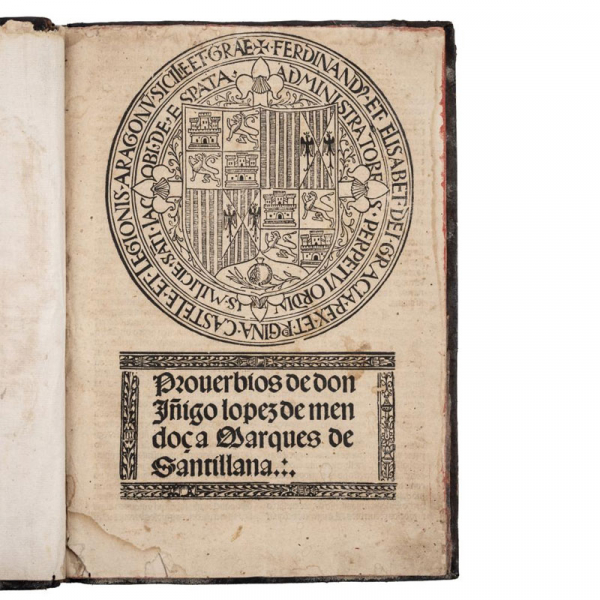 ✠ FERDINANDꝰ·ET·ELISABET·DEI·GRACIA·REX·ET·RGINA·CASTELE·ET·LEGIONIS·ARAGONV·SICILIE·ET·GRAE
ADMINISTRATORES·PERPETVI·ORDINIS·MILICIE·SATI·IACOBI·DE·ESPATA·
Prouerbios de don
Jñigo lopez de men
doça Marques de
Santillana.:.